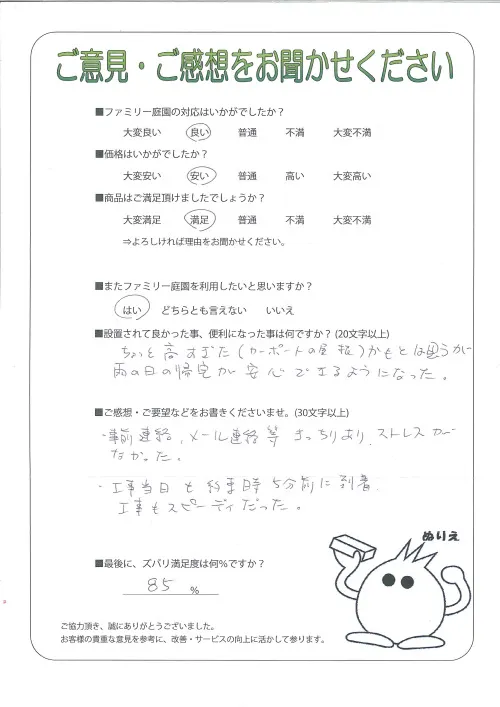 ご意見・ご感想をお聞かせください
■ファミリー庭園の対応はいかがでしたか？
大変良い 良い 普通 不満 大変不満
■価格はいかがでしたか？
大変安い 安い 普通 高い 大変高い
■商品はご満足頂けましたでしょうか？
大変満足 満足 普通 不満 大変不満
⇒よろしければ理由をお聞かせください。
■またファミリー庭園を利用したいと思いますか？
はい どちらとも言えない いいえ
■設置されて良かった事、便利になった事は何ですか？(20文字以上)
ちょっと高すぎた(カーポートの屋根)かもとは思うが
雨の日の帰宅が安心できるようになった。
■ご感想・ご要望などをお書きくださいませ。(30文字以上)
・事前連絡、メール連絡等きっちりあり、ストレスが
なかった。
・工事当日も約束時5分前に到着、
工事もスピーディだった。
ぬりえ
■最後に、ズバリ満足度は何％ですか？
85 %
ご協力頂き、誠にありがとうございました。
お客様の貴重な意見を参考に、改善・サービスの向上に活かして参ります。